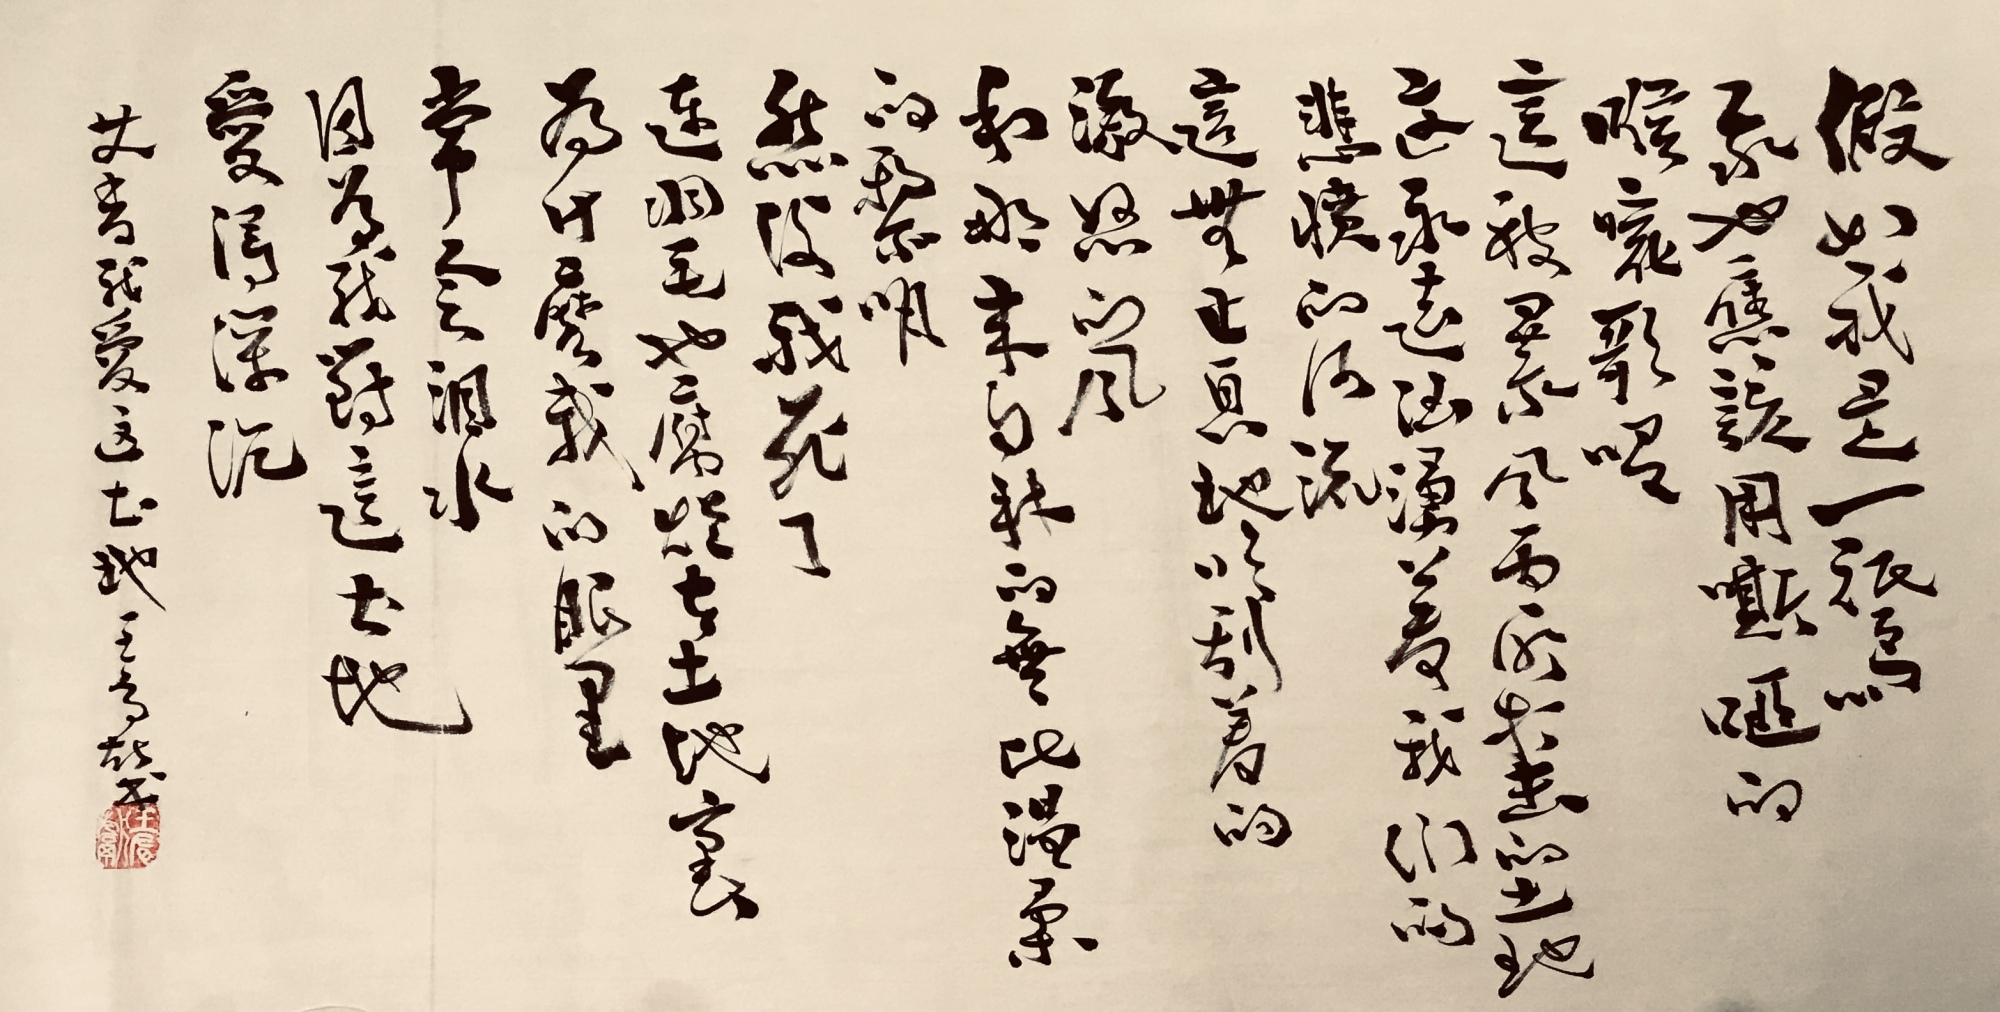 假如我是一衹鳥
我也應該用嘶啞的
喉嚨歌唱
這被暴风雨所打击的土地
这永遠汹湧着我们的
悲憤的河流
這無止息地吹刮着的
激怒的风
和那来自林的無比温柔
的黎明
然後我死了
連羽毛也腐爛在土地裏
為什麽我的眼里
常含泪水
因為我對這土地
愛得深沉
艾青我愛这土地